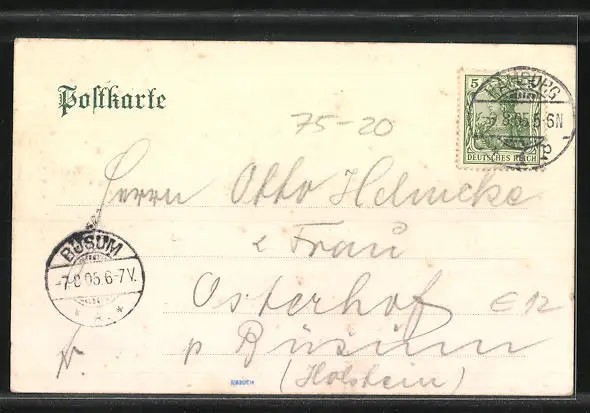 Postkarte
75-20
5
DEUTSCHES REICH
HAMBURG
8.05.5-6N
Herrn Otto Helmcke
& Frau
Osterhof
E 12
p Büsum
(Holstein)
BÜSUM
-7.8.05.6-7V.